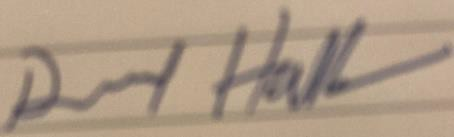 David Hall